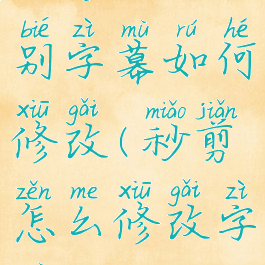 bié zì mù rú hé
别字幕如何
xiū gǎi miǎo jiǎn
修改(秒剪
zěn me xiū gǎi zì
怎么修改字